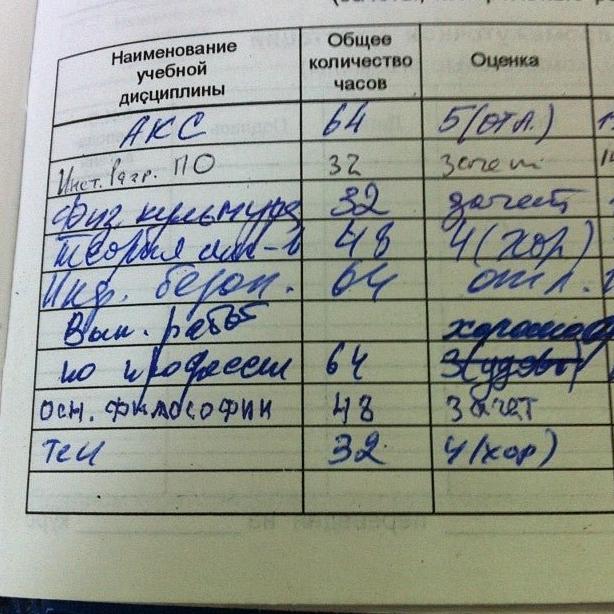 Наименование учебной дисциплины Общее количество часов Оценка
АКС 64 5(отл.)
Инст. Разр. ПО 32 зачет
Физ культура 32 зачет
48 4(хор)
Инф. безоп. 64 отл.
Вып. работ хорошо
по профессии 64 3(удов)
осн. философии 48 зачет
32 4(хор)
переведен на